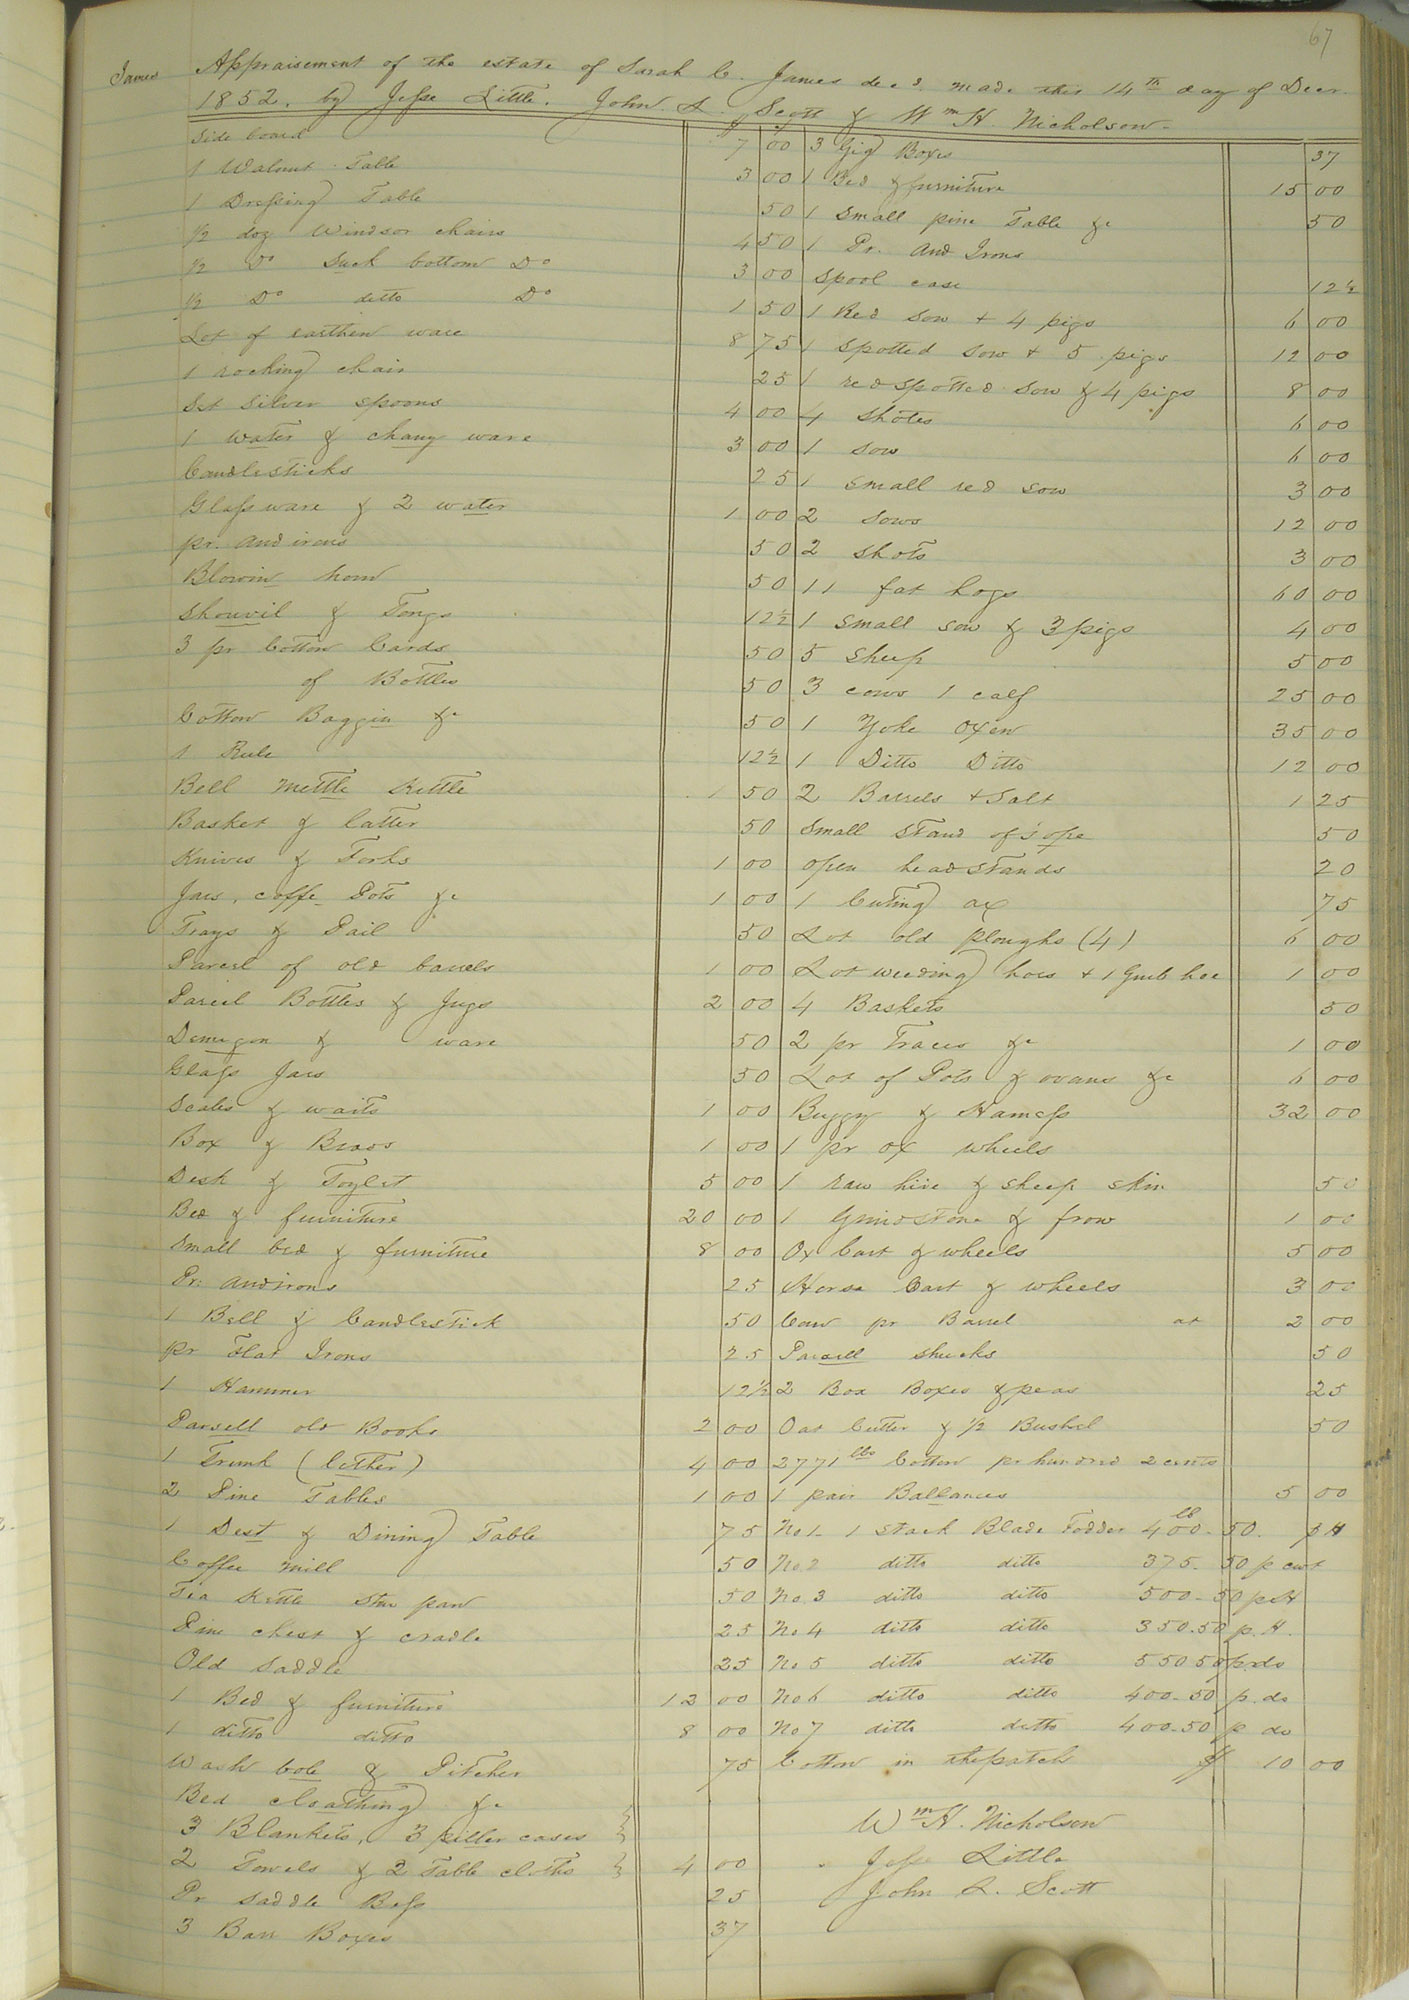 67
James
Appraisement of the estate of Sarah C. James decd. made this 14th day of Decr.
1852. by Jesse Little. John L. Scott & Wm H. Nicholson.
Side board 7 00
1 Walnut Table 3 00
1 Dressing Table 50
1/2 doz Windsor chairs 4 50
1/2 Do Suck bottom Do 3 00
1/2 Do ditto Do 1 50
Lot of earthen ware 8 75
1 rocking chair 25
Set silver spoons 4 00
1 water & chany ware 3 00
Candlesticks 25
Glassware & 2 water 1 00
pr. andirons 50
Blowin horn 50
Shouvil & Tongs 12 1/2
3 pr Cotton Cards 50
of Bottles 50
Cotton Baggin &c 50
1 Rule 12 1/2
Bell mettle Kettle 1 50
Basket & latter 50
Knives & Forks 1 00
Jars, coffe Pots &c 1 00
Trays & Pail 50
Parcel of old barrels 1 00
Parcel Bottles & Jugs 2 00
Demegon & ware 50
Glass Jars 50
Scales & waits 1 00
Box & Beaos 1 00
Desk & Toylet 5 00
Bed & furniture 20 00
Small bed & furniture 8 00
Pr. andirons 25
1 Bell & Candlestick 50
pr Flat Irons 25
1 Hammer 12 1/2
Parsell old Books 2 00
1 Trunk (Lether) 4 00
2 Pine Tables 1 00
1 Dest & Dining Table 75
Coffee mill 50
Tea Kettle Stue pan 50
Pine chest & cradle 25
Old Saddle 25
1 Bed & furniture 12 00
1 ditto ditto 8 00
Wash bole & Pitcher 75
Bed cloathing &c
3 Blankets, 3 piller cases
2 Towels & 2 Table cloths 4 00
Pr Saddle Bags 25
3 Ban Boxes 37
3 Gig Boxes 37
1 Bed & furniture 15 00
1 Small pine Table &c 50
1 Pr. And Irons
Spool case 12 1/2
1 Red sow + 4 pigs 6 00
1 spotted sow + 5 pigs 12 00
1 red spotted sow & 4 pigs 8 00
4 shotes 6 00
1 sow 6 00
1 small red sow 3 00
2 sows 12 00
2 shots 3 00
11 fat hogs 60 00
1 small sow & 3 pigs 4 00
5 sheep 5 00
3 cows 1 calf 25 00
1 Yoke Oxen 35 00
1 Ditto Ditto 12 00
2 Barrels + Salt 1 25
Small stand of sope 50
open head stands 20
1 Cuting ax 75
Lot old ploughs (4) 6 00
Lot weeding hoes + 1 Grub hoe 1 00
4 Baskets 50
2 pr Traces &c 1 00
Lot of Pots & ovans &c 6 00
Buggy & Harness 32 00
1 pr ox wheels
1 raw hide & sheep skin 50
1 Grindstone & frow 1 00
Ox Cart & wheels 5 00
Horse Cart & wheels 3 00
Corn pr Barrel at 2 00
Parcell shucks 50
2 Box Boxes & peas 25
Oat Cutter & 1/2 Bushel 50
2771 lbs Cotton pr hundred 2 cents
1 pair Ballances 5 00
No 1 1 stack Blade Fodder 400 lb - 50. p H
No. 2 ditto ditto 375. 50 p cwt
No. 3 ditto ditto 500 - 50 p H
No 4 ditto ditto 350.50 p. H.
No 5 ditto ditto 550 50 p do
No 6 ditto ditto 400. 50 p. do
No 7 ditto ditto 400.50 p do
Cotton in the patch $ 10 00
Wm H. Nicholson
Jesse Little
John L. Scott